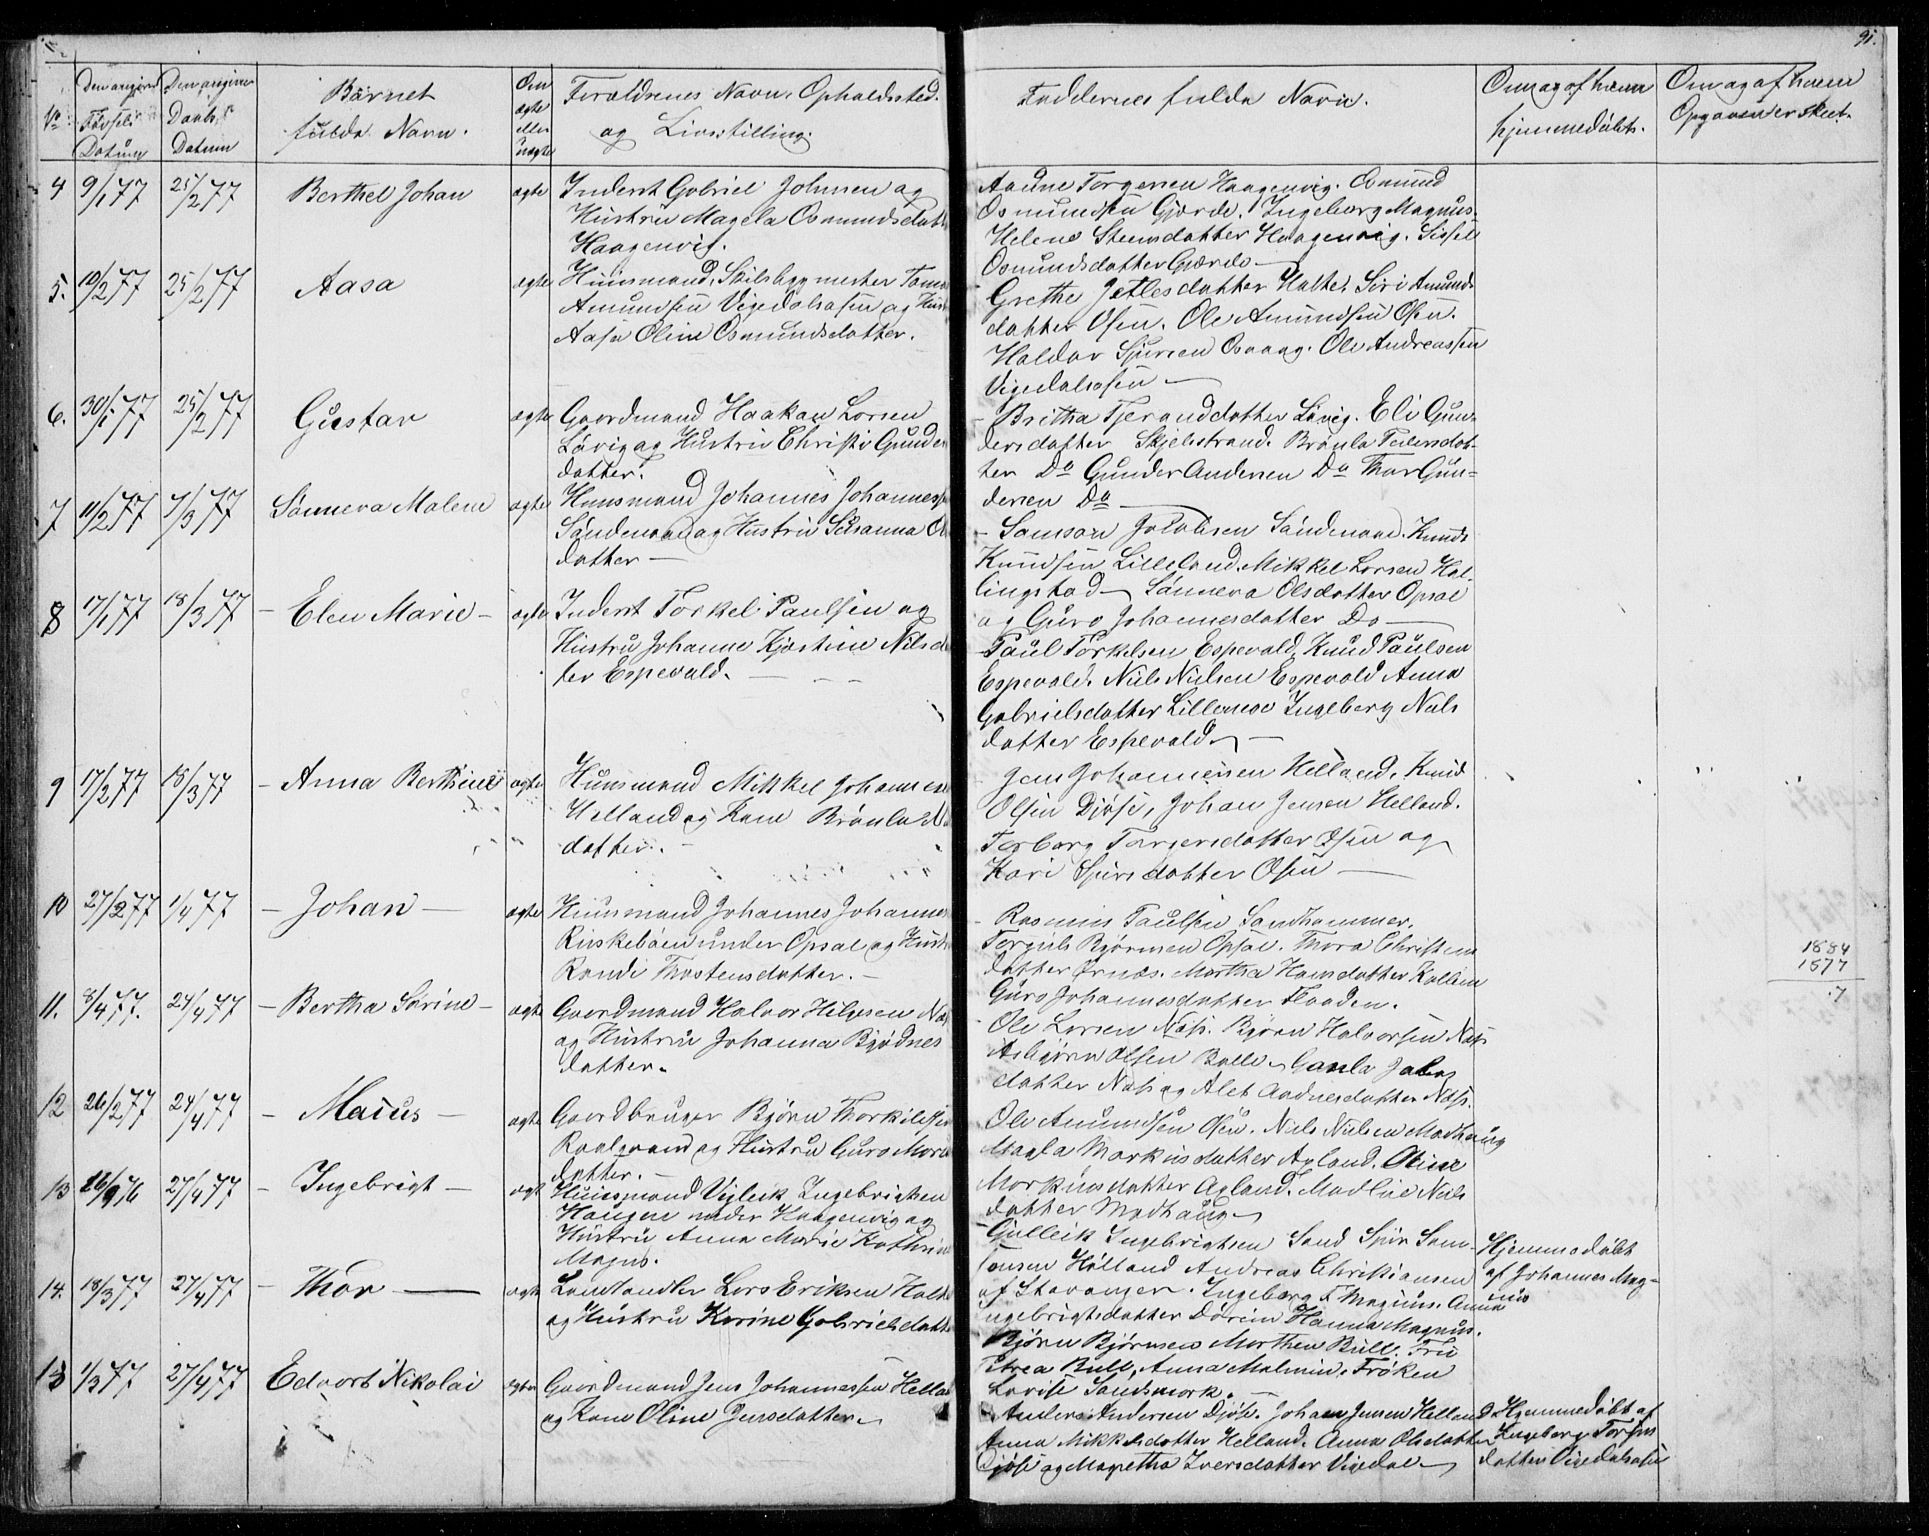 91.
No
Den angivne Fødsels Datum
Den angivne Daabs Datum
Barnet
fulde Navn.
Om ægte eller uægte
Forældrenes Navn, Opholdssted
og Livsstilling.
Faddernes fulde Navn.
Om og af hvem
hjemmedøbt.
Om og af hvem
Opgaven er skeet.
4 9/1 77 25/2 77 Berthel Johan ægte
Inderst Gabriel Johnsen og
Hustru Magela Osmundsdatt
Haagenvig.
Aadne Torgersen Haagenvig. Osmund
Osmundsen Gjærde. Ingeborg Magnus.
Helene Steensdatter Haagenvig. Sissel
Osmundsdatter Gjærde
5. 10/2 77 25/2 77 Aasa ægte
Huusmand, Skibsbygmester
Amundsen Vigedalsosen og
Aasa Oline Osmundsdatter.
Grethe Jetlesdatter Halte. Siri Amunds
datter Osen. Ole Amundsen Osen.
Haldor Sjursen Osvaag. Ole Andreassen
Vigedalsosen
6. 30/1 77 25/2 77 Gustav ægte
Gaardmand Haakon Larsen
Løvig og Hustru Christi Gunders
datter.
Britha Tjeranddatter Løvig. Eli Gun-
dersdatter Skjelstrand. Brønla Pedersdat-
ter Do Gunder Andersen Do Thor Gun-
dersen Do
7 11/2 77 4/3 77 Sønneva Malene ægte
Huusmand Johannes Johannes
Søndenaa og Hustru Susanna
datter
Samson Jakobsen Søndenaa. Knud
Knudsen Lilleland. Mikkel Larsen Hal-
lingstad Sønneva Olsdatter Opsal
og Guro Johannesdatter Do
8 17/1 77 18/3 77 Elen Marie ægte
Inderst Torkel Paulsen og
Hustru Johanne Kjestine Nilsd
ter Espevold.
Paul Torkelsen Espevold, Knud Paulsen
Espevold. Nils Nilsen Espevold Anna
Gabrielsdatter Lillemoe Ingeborg Nils
datter Espevold
9 17/2 77 18/3 77 Anna Berthine ægte
Huusmand Mikkel Johannes
Helland og Kone Brønla
datter.
Jens Johannesen Helland. Knud
Olsen Djøse, Johan Jensen Helland.
Torborg Torgersdatter Osen og
Kari Sjursdatter Osen
10 27/2 77 1/4 77 Johan ægte
Huusmand Johannes Johannes
Ruskebøen under Opsal og Hust
Randi Thostensdatter.
Rasmus Paulsen Sandhammer.
Torgils Bjørnsen Opsal. Thora Christens
datter Ørnes. Martha Hansdatter
Guro Johannesdatter Flaaden.
1884
1877
7
11. 8/4 77. 24/4 77 Bertha Sørine ægte
Gaardmand Halvor Helgesen
og Hustru Johanna
datter.
Ole Larsen Næs. Bjørn Halvorsen Næs
Asbjørn Olsen Garla
datter Næs og Alet Aadnesdatter Næs.
12 26/2 77 24/4 77 Maius ægte
Gaardbruger Bjørn Thorkildsen
og Hustru Guro
datter.
Ole Amundsen Osen. Nils Nilsen Modhaug
Magla Markusdatter Agland. Oline
Markusdatter Agland. Madlie Nils
datter Modhaug
13 26/9 76 27/4 77 Ingebrigt ægte
Huusmand Vigleik Ingebrigtsen
Haugene under Haagenvig og
Hustru Anna Marie Kathrine
Magns.
Gulleik Ingebrigtsen Sand Sjur Sam-
sonsen Hølland Andreas Christiansen
af Stavanger. Ingeborg T. Magnus. Anna
Ingebrigtsdatter Hanna Magnus.
Hjemmedøbt
af Johannes Mag-
nus
14. 18/3 77 27/4 77 Thor ægte
Landhandler Lars Eriksen Halte
og Hustru Karine Gabrielsdatt
Bjørn Bjørnsen Morthen Bull. Fru
Petrea Bull, Anna Malmin. Frøken
Lovise Sandsmark.
13 1/3 77 27/4 77 Edvart Nikolai ægte
Gaardmand Jens Johannessen Hella
og Kone Oline Jensdatter
Anders Andersen Djøse. Johan Jensen Helland
Anna Mikkelsdatter Helland. Anna Olsdatter
Djøse og Magretha Iversdatter Vigedal
Hjemmedøbt af
Ingeborg
datter Vigedalsosen